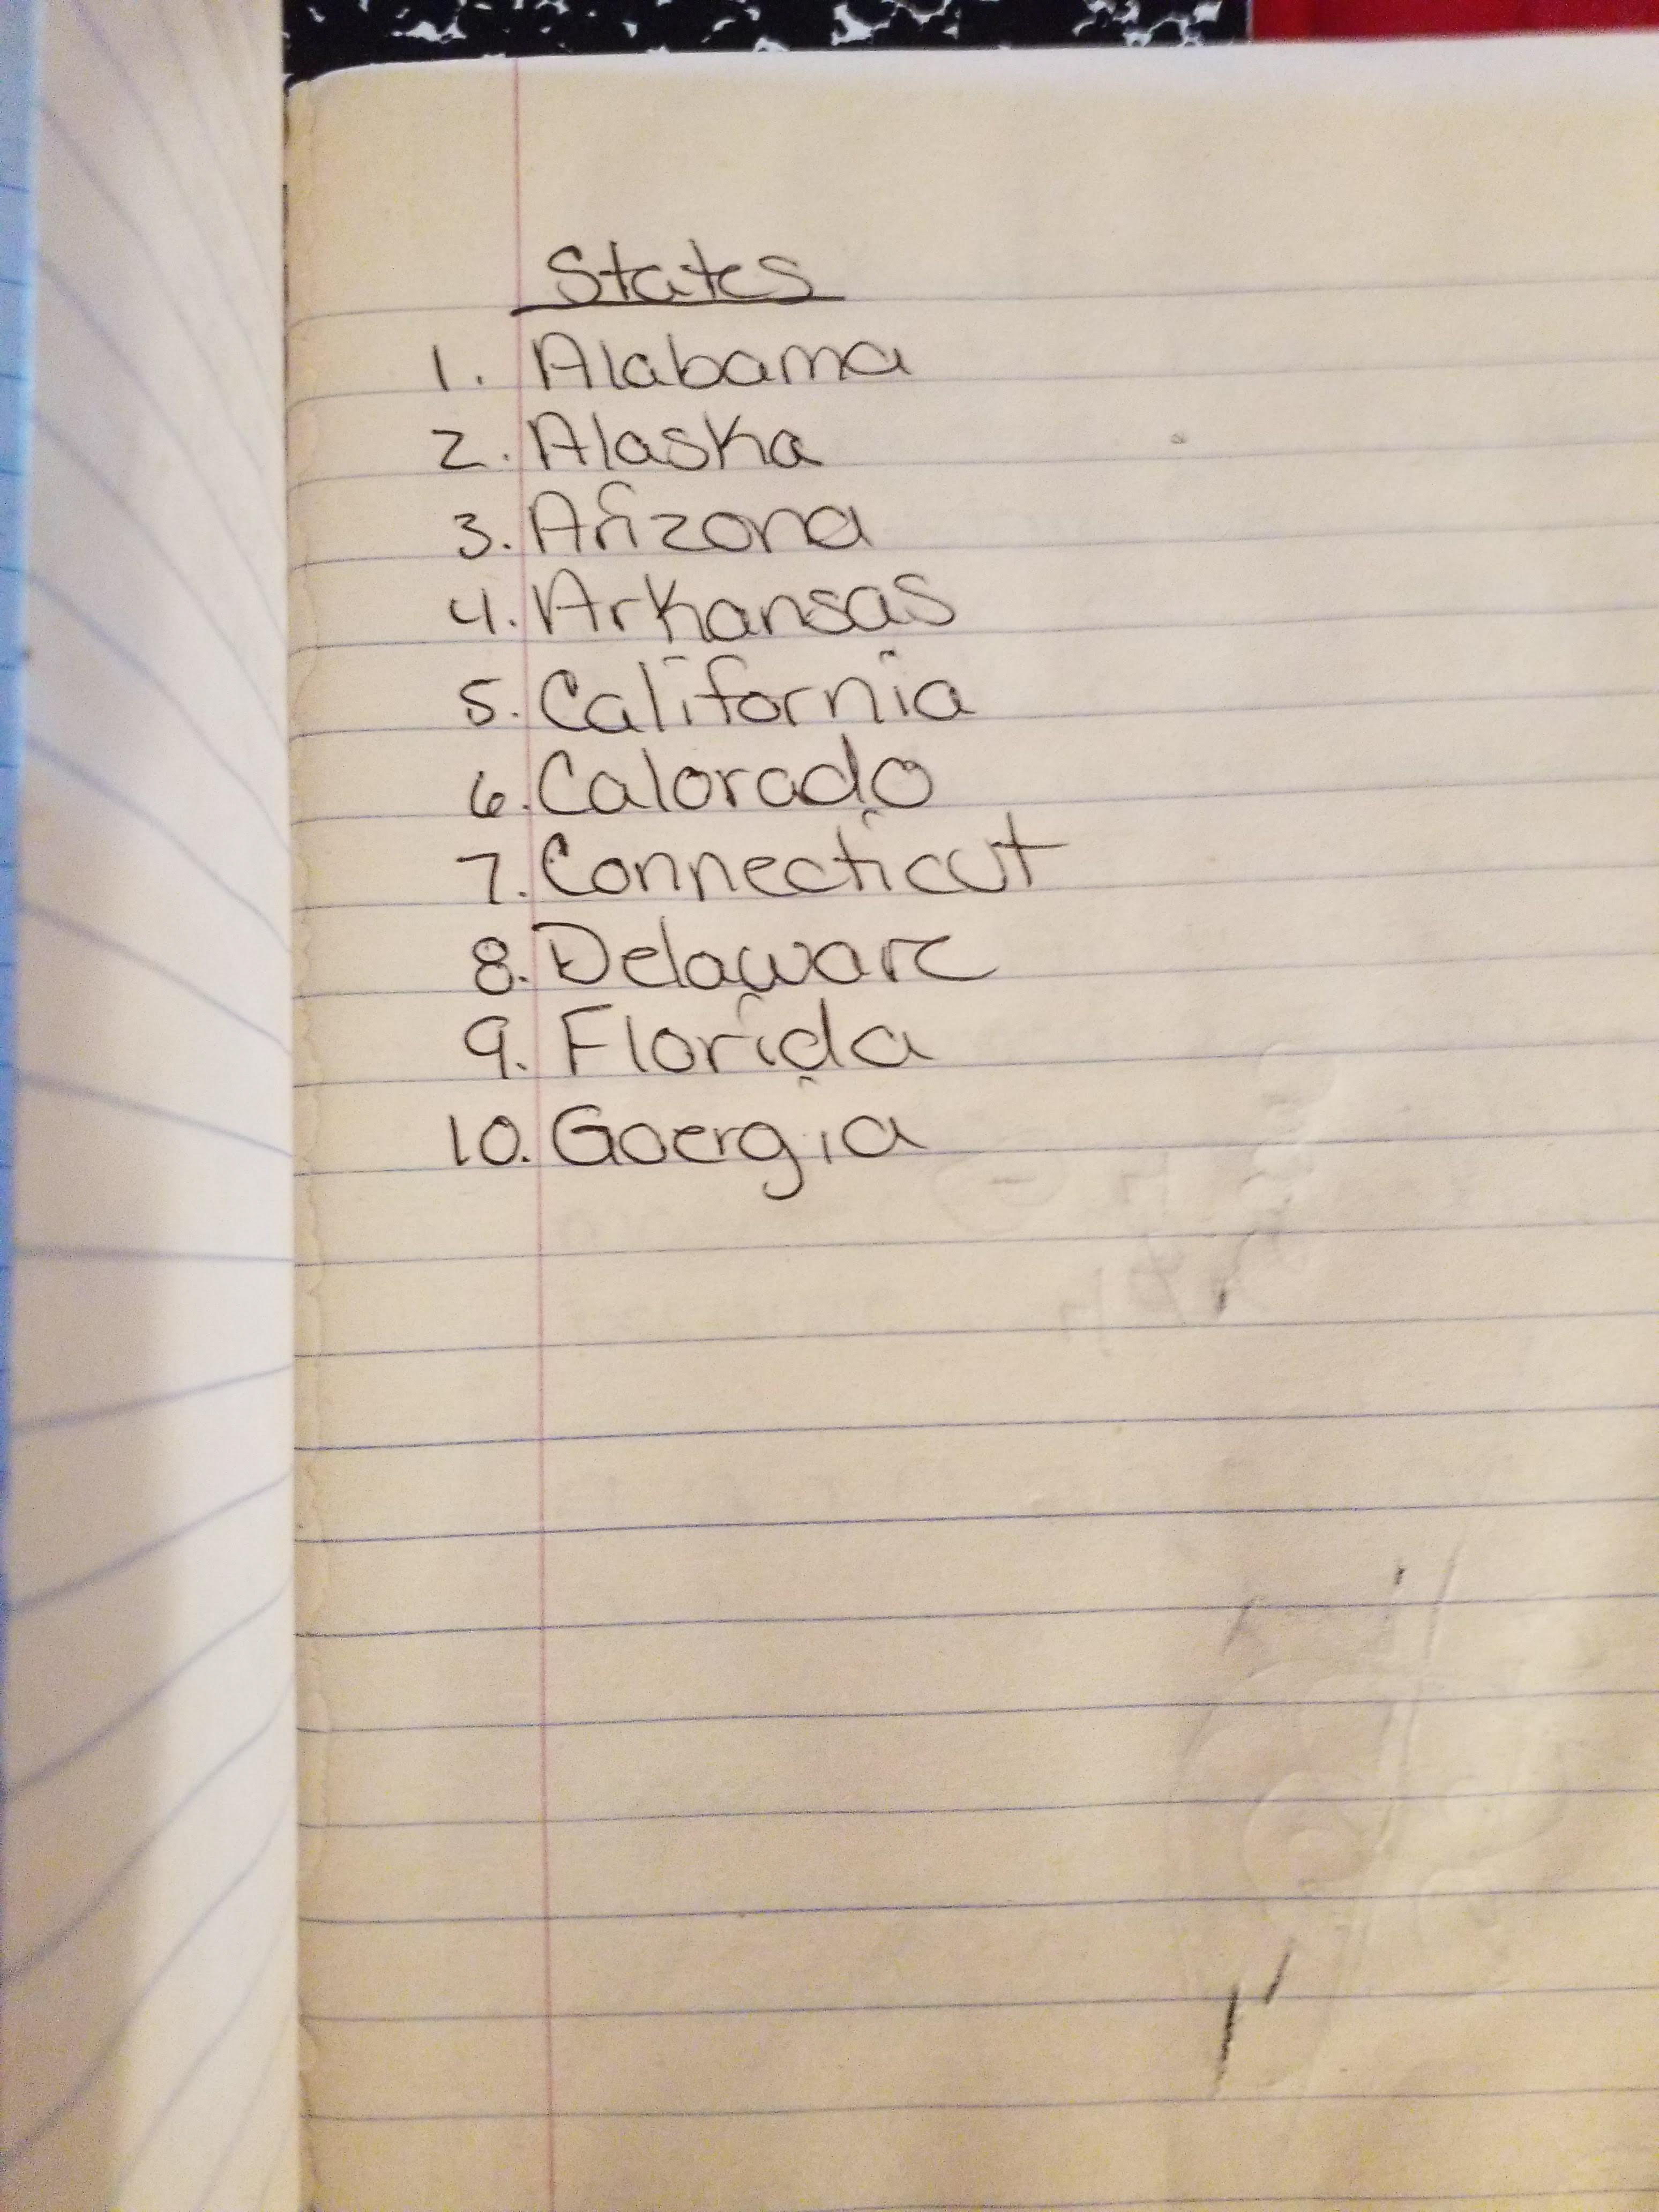 States
1. Alabama
2. Alaska
3. Arizona
4. Arkansas
5. California
6. Calorado
7. Connecticut
8. Delaware
9. Florida
10. Goergia